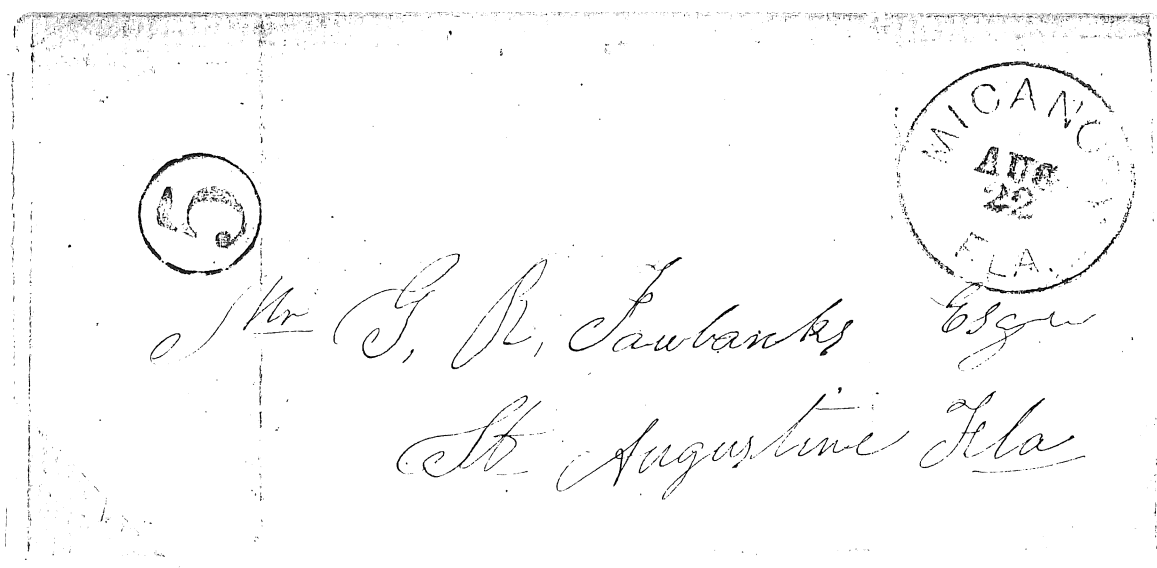 MICANOPY
AUG
22
FLA.
5
Mr G. R. Fairbanks Esqr
St Augustine Fla